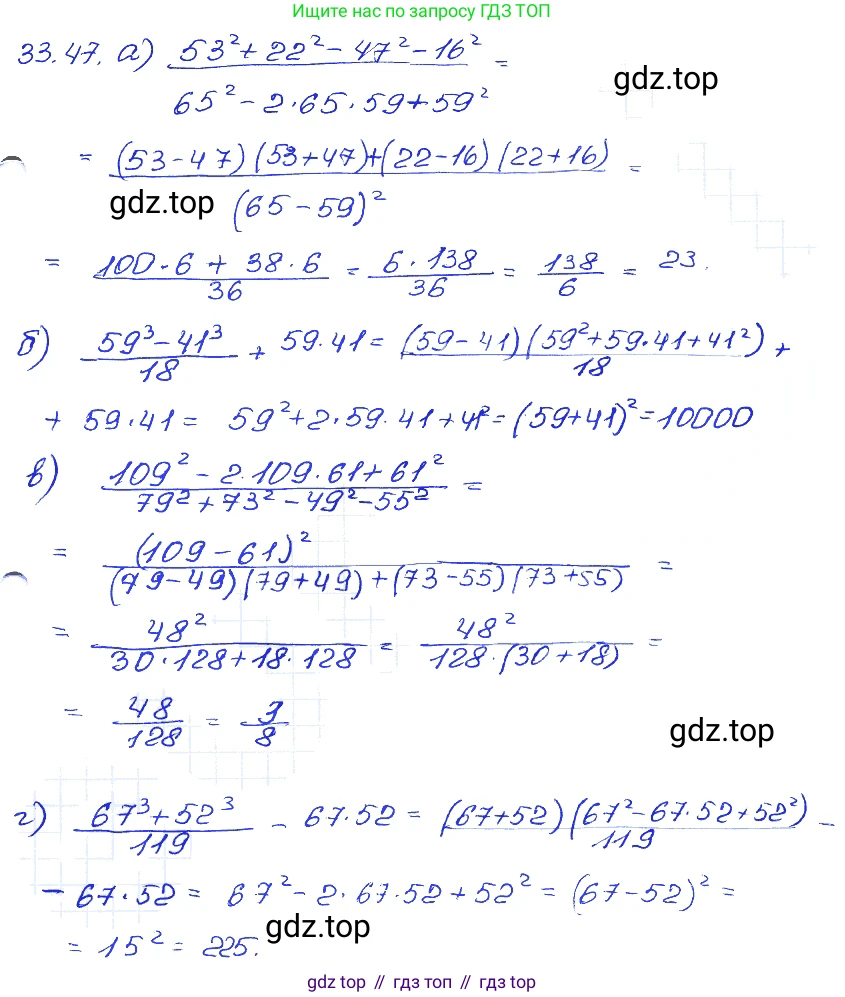 Ищите нас по запросу ГДЗ ТОП
33.47. а) (53² + 22² - 47² - 16²) / (65² - 2·65·59 + 59²) =
gdz.top
= ((53-47)(53+47)+(22-16)(22+16)) / (65-59)² =
gdz.top
= (100·6 + 38·6) / 36 = (6·138) / 36 = 138 / 6 = 23.
б) (59³ - 41³) / 18 + 59·41 = ((59-41)(59²+59·41+41²)) / 18 +
+ 59·41 = 59²+2·59·41+41² = (59+41)² = 10000
в) (109² - 2·109·61 + 61²) / (79² + 73² - 49² - 55²) =
= (109-61)² / ((79-49)(79+49)+(73-55)(73+55)) =
= 48² / (30·128+18·128) = 48² / (128·(30+18)) =
= 48 / 128 = 3 / 8
gdz.top
г) (67³ + 52³) / 119 - 67·52 = ((67+52)(67²-67·52+52²)) / 119 -
- 67·52 = 67² - 2·67·52 + 52² = (67-52)² =
gdz.top
= 15² = 225.
gdz top // гдз топ // gdz top